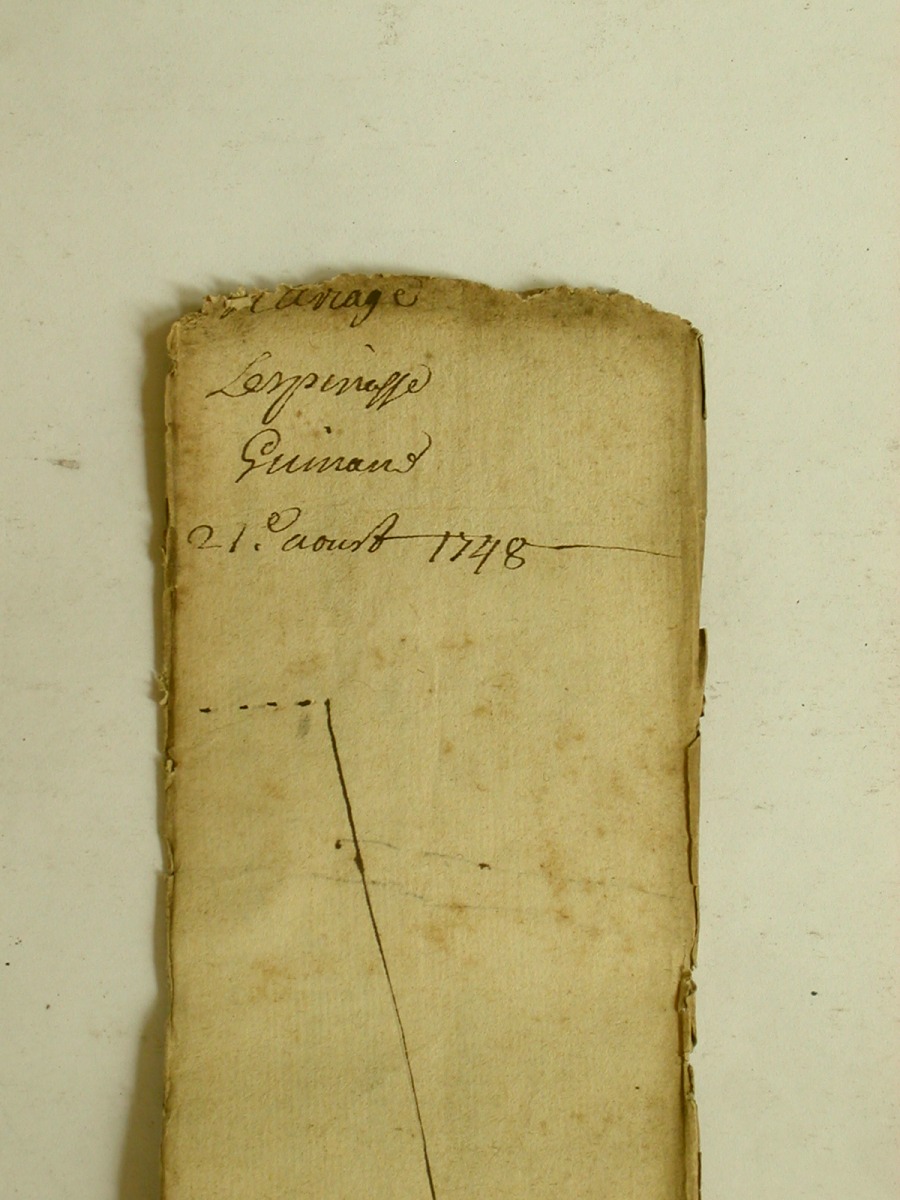 Mariage
Lespinasse
Guinand
21.e aoust 1748